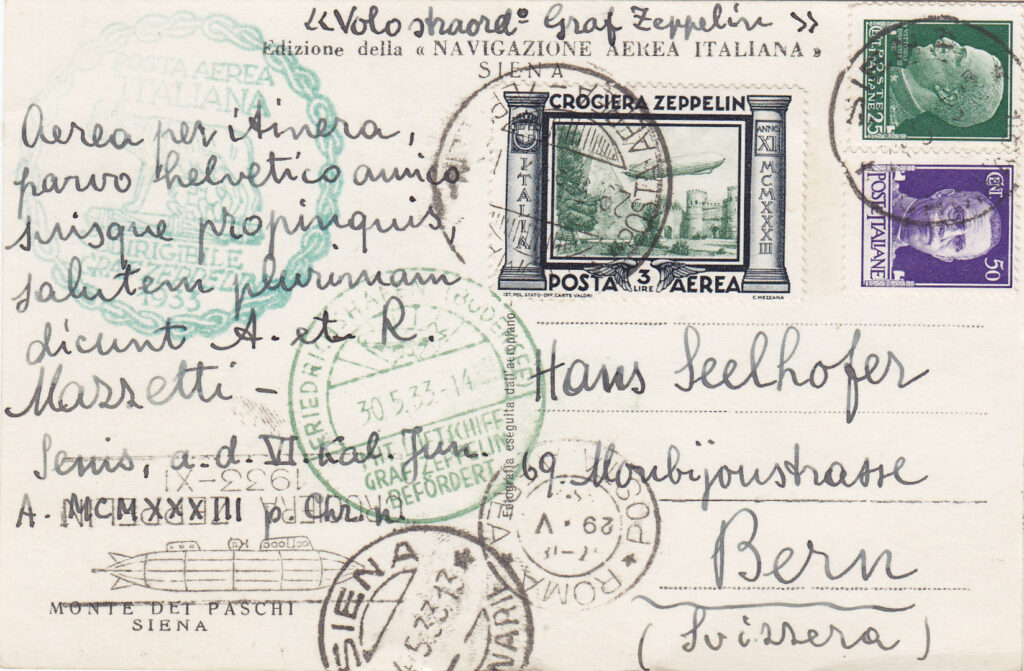 « Volo straord° Graf Zeppelin »
Edizione della « NAVIGAZIONE AEREA ITALIANA »
SIENA
POSTE
ITALIANE
CENT
25
POSTE ITALIANE
CENT
50
CROCIERA ZEPPELIN
ITALIA
ANNO XI MCMXXXIII
POSTA 3 LIRE AEREA
IST. POL. STATO - OFF. CARTE VALORI
C. MEZZANA
POSTA AEREA
ITALIANA
DIRIGIBILE
GRAF ZEPPELIN
1933
Aerea per itinera,
parvo helvetico amico
suisque propinquis,
salutem plurimam
dicunt A. et R.
Mazzetti -
Senis, a. d. VI Kal. Jun.
A. MCMXXXIII p. Chr. n.
FRIEDRICHSHAFEN (BODENSEE)
30.5.33.-14
MIT LUFTSCHIFF
GRAF ZEPPELIN
BEFÖRDERT
Fotografia eseguita dall'aeroplano -
Hans Seelhofer
69 Monbijoustrasse
Bern
(Svizzera)
1933-XI
CROCIERA ZEPPELIN
MONTE DEI PASCHI
SIENA
SIENA
5.33.13
ROMA POSTA AEREA
29 . V